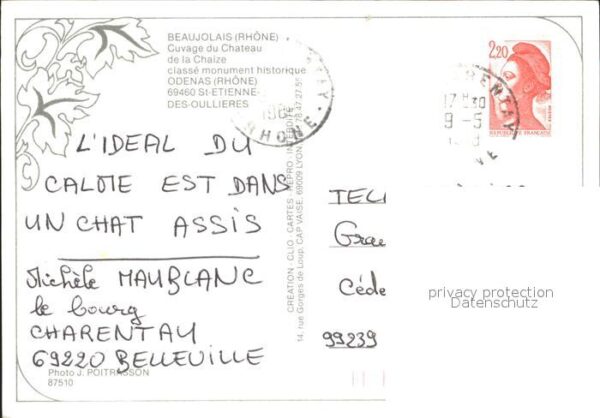 BEAUJOLAIS (RHÔNE)
Cuvage du Chateau
de la Chaize
classé monument historique
ODENAS (RHÔNE)
69460 St-ETIENNE-
DES-OULLIERES
2,20
REPUBLIQUE FRANÇAISE
17 H 30
9-5
RHONE
L'IDEAL DU
CALME EST DANS
UN CHAT ASSIS
Michèle MAUBLANC
le bourg
CHARENTAY
69220 BELLEVILLE
Photo J. POITRASSON
87510
CREATION - CLIO - CARTES - REPRO. INTERDITE
14, rue Gorges de Loup, CAP VAISE, 69009 LYON 78.47.27.55
TEL
Gra
Céde
99239
privacy protection
Datenschutz